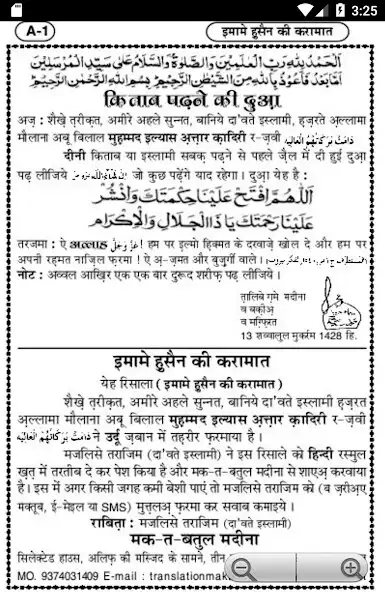 3:25
A-1 इमामे हुसैन की करामात
اَلْحَمْدُ لِلّٰهِ رَبِّ الْعٰلَمِيْنَ وَالصَّلٰوةُ وَالسَّلَامُ عَلٰى سَيِّدِ الْمُرْسَلِيْنَ
اَمَّا بَعْدُ فَاَعُوْذُ بِاللّٰهِ مِنَ الشَّيْطٰنِ الرَّجِيْمِ بِسْمِ اللّٰهِ الرَّحْمٰنِ الرَّحِيْمِ
किताब पढ़ने की दुआ
अज़ : शैख़े त़रीक़त, अमीरे अहले सुन्नत, बानिये दा'वते इस्लामी, हज़रते अ़ल्लामा
मौलाना अबू बिलाल मुह़म्मद इल्यास अ़त्त़ार क़ादिरी र-ज़वी دَامَتْ بَرَكَاتُهُمُ الْعَالِيَه
दीनी किताब या इस्लामी सबक़ पढ़ने से पहले ज़ैल में दी हुई दुआ़
पढ़ लीजिये जो कुछ पढ़ेंगे याद रहेगा। दुआ़ यह है :
اَللّٰهُمَّ افْتَحْ عَلَيْنَا حِكْمَتَكَ وَانْشُرْ
عَلَيْنَا رَحْمَتَكَ يَا ذَا الْجَلَالِ وَالْاِكْرَام
तरजमा : ऐ अल्लाह عَزَّوَجَلَّ ! हम पर इल्मो हि़क्मत के दरवाज़े खोल दे और हम पर
अपनी रह़मत नाज़िल फ़रमा ! ऐ अ़-ज़मत और बुज़ुर्गी वाले।
नोट : अव्वल आख़िर एक एक बार दुरूद शरीफ़ पढ़ लीजिये।
त़ालिबे ग़मे मदीना
व बक़ीअ़
व मग़्फ़िरत
13 शव्वालुल मुकर्रम 1428 हि.
इमामे हुसैन की करामात
येह रिसाला ( इमामे हुसैन की करामात )
शैख़े त़रीक़त, अमीरे अहले सुन्नत, बानिये दा'वते इस्लामी हज़रत
अ़ल्लामा मौलाना अबू बिलाल मुह़म्मद इल्यास अ़त्त़ार क़ादिरी र-ज़वी
دَامَتْ بَرَكَاتُهُمُ الْعَالِيَه ने उर्दू ज़बान में तह़रीर फ़रमाया है।
मजलिसे तराजिम (दा'वते इस्लामी) ने इस रिसाले को हिन्दी रस्मुल
ख़त़ में तरतीब दे कर पेश किया है और मक-त-बतुल मदीना से शाएअ़ करवाया
है। इस में अगर किसी जगह कमी बेशी पाएं तो मजलिसे तराजिम को (ब ज़रीअ़ए
मक्तूब, ई-मेइल या SMS) मुत्त़लअ़ फ़रमा कर सवाब कमाइये।
राबित़ा : मजलिसे तराजिम (दा'वते इस्लामी)
मक-त-बतुल मदीना
सिलेक्टेड हाउस, अलिफ़ की मस्जिद के सामने, तीन
MO. 9374031409 E-mail : translationmak